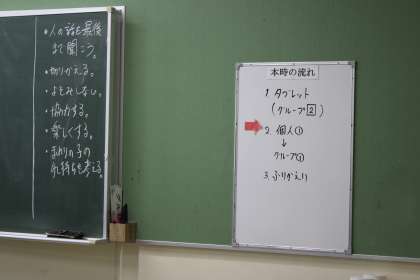 ・人の話を最後
まで聞こう。
・切りかえる。
・よそみしない。
・協力する。
・楽しくする。
・まわりの子の
気持ちを考える。
本時の流れ
1 タブレット
(グループ2)
2. 個人①
↓
グループ①
3. ふりかえり